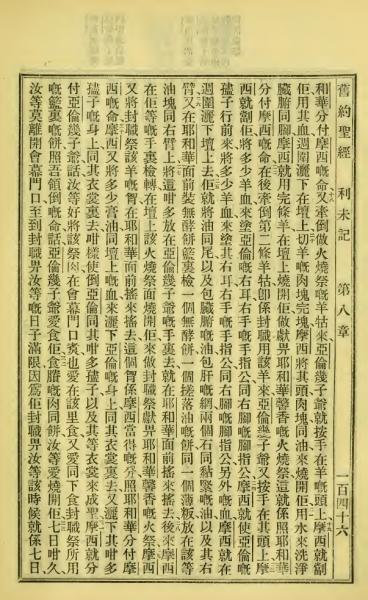 舊約聖經 利未記 第八章 一百四十六
和華分付摩西嘅命又牽倒做火燒祭嘅羊牯來亞倫幾子爺就按手在羊嘅頭上摩西就劏
佢用其血週圍灑下在壇上切羊嘅肉塊完塊摩西將其頭肉塊同油來燒開佢用水來洗淨
臟腑同腳摩西就用完條羊在壇上燒開佢做獻畀耶和華馨香嘅火燒祭這就係照耶和華
分付摩西嘅命在後牽倒第二條羊牯卽係封職用該羊來亞倫幾子爺又按手在其頭上摩
西就劏佢將多少羊血來塗亞倫嘅右耳右手嘅手指公同右腳嘅腳指公摩西就使亞倫嘅
孻子行前來將多少羊血來塗其右耳右手嘅手指公同右腳嘅腳指公另外嘅血摩西就在
週圍灑下壇上去佢就將油同尾以及包臟腑嘅油包肝嘅網兩個石同黏緊嘅油以及其右
臂又在耶和華面前裝無酵餅嘅籃裏檢一個無酵餅一個搓落油嘅餅同一個薄粄放在該等
油塊同右臂上將這咁多放在亞倫幾子爺嘅手裏去就在耶和華面前搖來搖去後來摩西
在佢等嘅手裏檢轉在壇上該火燒祭面燒開佢來做封職祭獻畀耶和華馨香嘅火祭摩西
又將封職祭該羊嘅胷在耶和華面前搖來搖去這個胷係摩西當得嘅分照耶和華分付摩
西嘅命摩西又將多少膏油同壇上嘅血來灑下亞倫嘅身上同其衣裳裏去又灑下其咁多
孻子嘅身上同其衣裳裏去咁樣使倒亞倫同其咁多孻子以及其等衣裳來成聖摩西就分
付亞倫幾子爺話汝等好將該祭肉在會幕門口也愛在該里食又愛同下食封職祭所用
嘅籃裏嘅餅照吾領倒嘅命話亞倫幾子爺愛食佢食賸嘅肉同餅汝等愛燒開佢七日咁久
汝等莫離開會幕門口至到封職畀汝等嘅日子滿限因爲佢封職畀汝等該時候就係七日